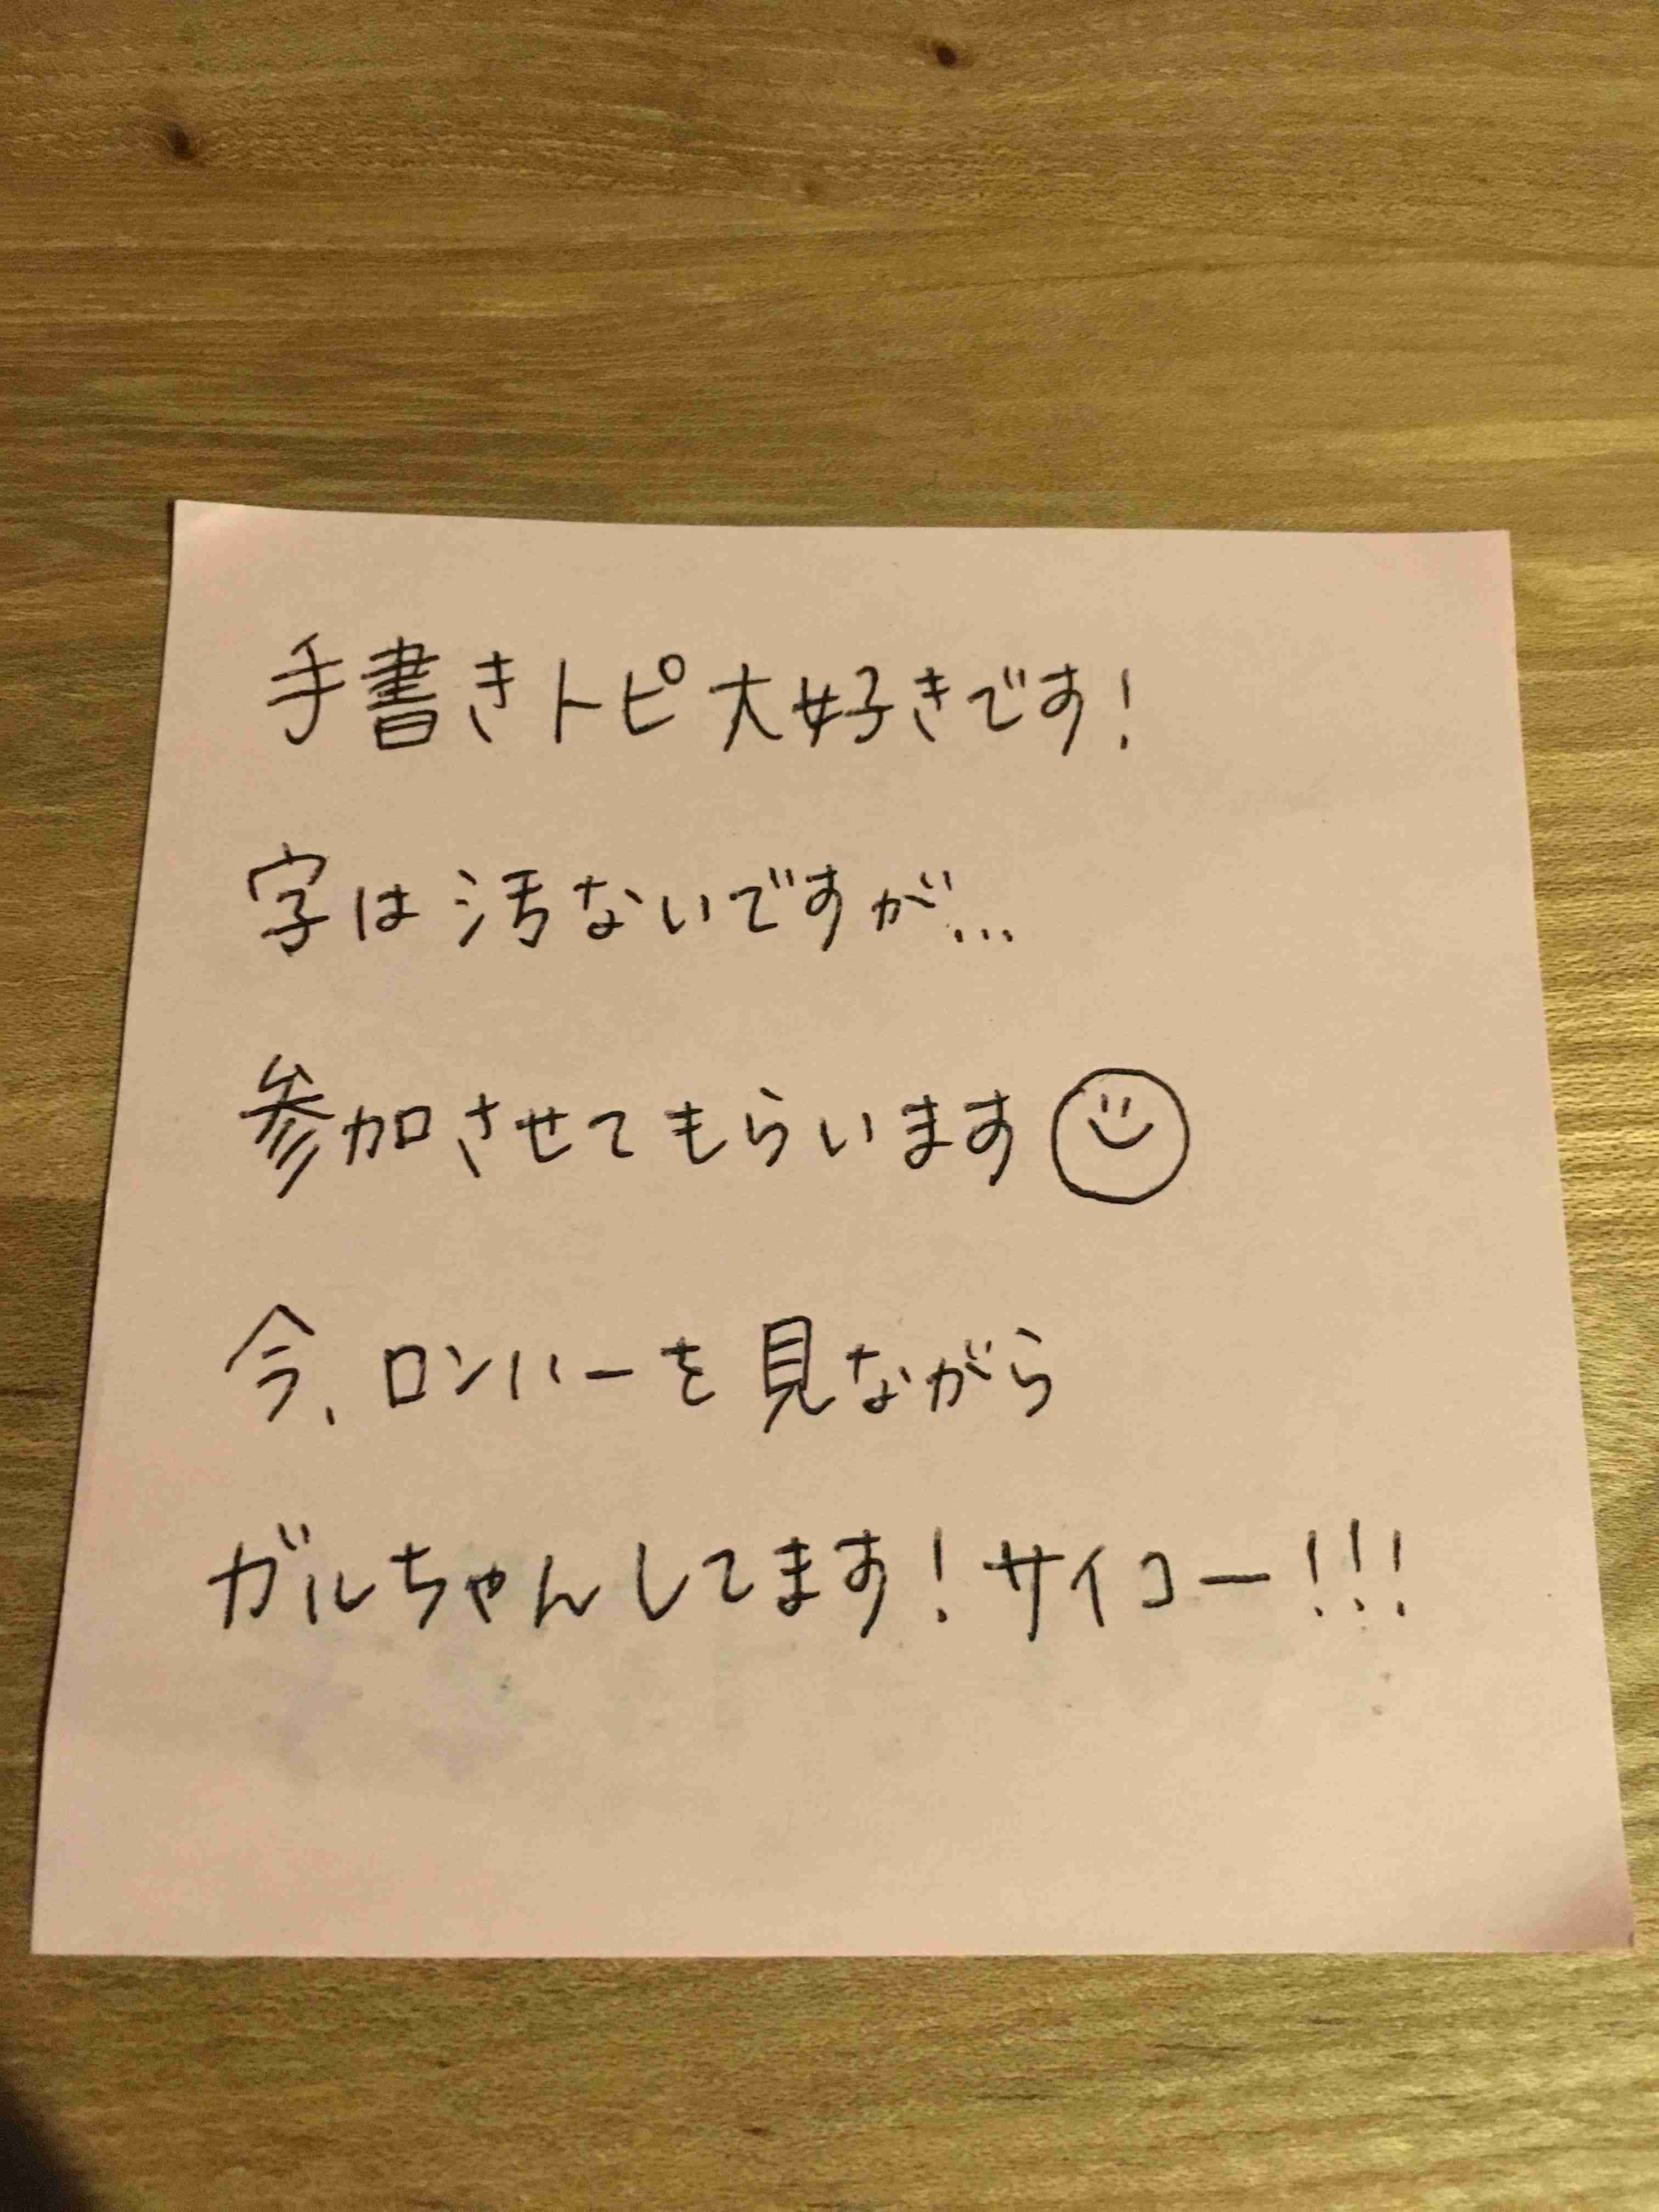 手書きトピ大好きです!
字は汚ないですが...
参加させてもらいます
今、ロンハーを見ながら
ガルちゃんしてます!サイコー!!!